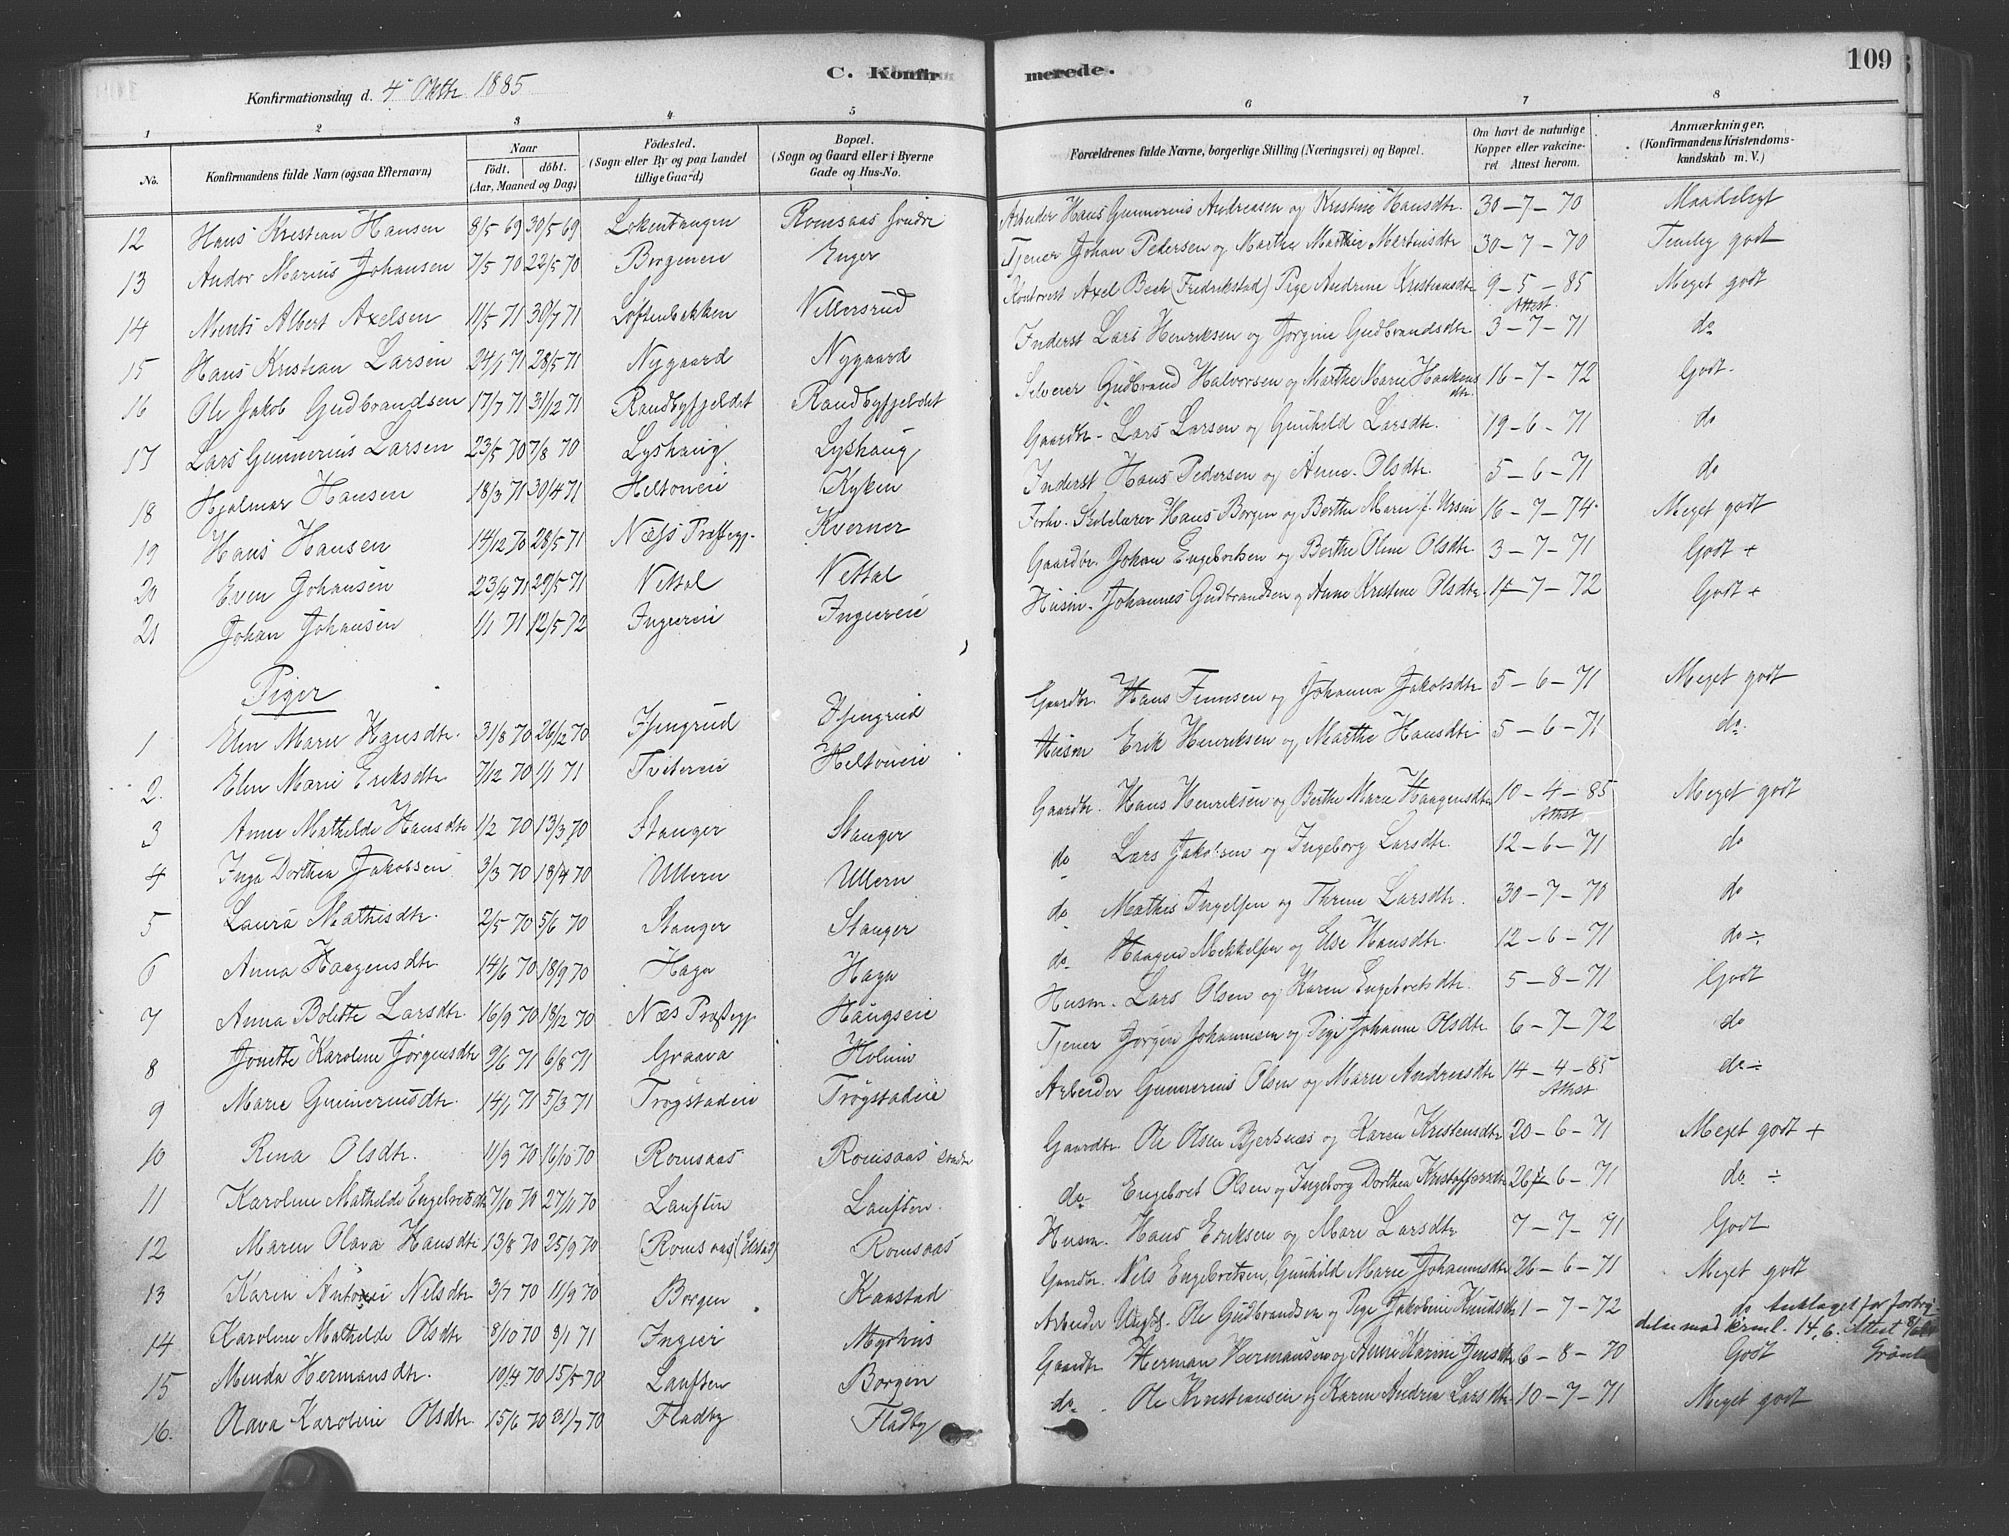 109
C. Konfirmerede.
Konfirmationsdag d. 4de Oktbr. 1885
1 2 3 4 5 6 7 8
No.
Konfirmandens fulde Navn (ogsaa Efternavn)
Naar
Födt. döbt.
(Aar, Maaned og Dag)
Födested.
(Sogn eller By og paa Landet
tillige Gaard)
Bopæl.
(Sogn og Gaard eller i Byerne
Gade og Hus-No.
Forældrenes fulde Navne, borgerlige Stilling (Næringsvei) og Bopæl.
Om havt de naturlige
Kopper eller vaccine-
ret Attest herom.
Anmærkninger.
(Konfirmandens Kristendoms-
kundskab m. V.)
12 Hans Kristian Hansen 8/5 69 30/5 69 Lokentangen Romsaas söndre Arbeider Hans Gunnerius Andreasen og Kristine Hansdtr. 30-7-70 Maadeligt
13 Andor Marius Johansen 7/5 70 22/5 70 Borgeneie Enger Tjener Johan Pedersen og Marthe Mathia Martinisdtr 30-7-70 Temlig godt
14 Ments Albert Axelsen 11/5 71 30/7 71 Loftenbakken Nillersrud Kontorist Axel Bech (Fredrikstad) Pige Andrine Kristiansdtr 9-5-85 Attest Meget godt
15 Hans Kristian Larsen 24/1 71 28/5 71 Nygaard Nygaard Inderst Lars Henriksen og Jorgine Gudbrandsdtr 3-7-71 do
16 Ole Jakob Gudbrandsen 17/7 71 31/12 71 Randbyfjeldet Randbyfjeldet Selveier Gudbrand Halvorsen og Marthe Marie Haakensdtr. 16-7-72 Godt
17 Lars Gunnerius Larsen 23/5 70 7/8 70 Lyshaug Lyshaug Gaardbr. Lars Larsen og Gunhild Larsdtr. 19-6-71 do
18 Hjalmar Hansen 18/3 71 30/4 71 Heltoneie Kyken Inderst Hans Pedersen og Anne Olsdtr. 5-6-71 do
19 Hans Hansen 14/12 70 28/5 71 Næss Præstegj. Kverner Forhv. Skolelærer Hans Borgen og Berthe Marie f. Ursin 16-7-74 Meget godt
20 Even Johansen 23/4 71 29/5 71 Nettal Nettal Gaardbr. Johan Engebretsen og Berthe Oline Olsdtr 3-7-71 Godt +
21 Johan Johansen 1/1 71 12/5 72 Ingiereie Ingiereie Husm. Johannes Gudbrandsen og Anne Kristine Olsdtr. 17-7-72 Godt +
Piger
1 Elen Marie Hansdtr. 31/8 70 26/12 70 Isengrud Isengrud Gaardbr. Hans Finnsen og Johanna Jakobsdtr 5-6-71 Meget godt
2. Elen Marie Eriksdtr 7/12 70 1/1 71 Tvetereie Heltoneie Husm Erik Henriksen og Marthe Hansdtr 5-6-71 do
3 Anne Mathilde Hansdtr 1/2 70 13/3 70 Stanger Stanger Gaardbr. Hans Henriksen og Berthe Marie Haagensdtr 10-4-85 Attest Meget godt
4 Inga Dorthea Jakobsen 3/3 70 18/4 70 Ullern Ullern do Lars Jakobsen og Ingeborg Larsdtr. 12-6-71 do
5 Laura Mathisdtr. 2/5 70 5/6 70 Stanger Stanger do Mathis Ingelsen og Thrine Larsdtr. 30-7-70 do
6 Anna Haagensdtr 14/6 70 18/9 70 Haga Haga do Haagen Mikkelsen og Else Hansdtr. 12-6-71 do ÷
7 Anna Bolette Larsdtr. 16/9 70 18/12 70 Næs Præstegj. Haugseie Husm. Lars Olsen og Karen Engebretsdtr. 5-8-71 Godt
8 Jonette Karoline Jörgensdtr 9/6 71 6/8 71 Graava Holmin Tjener Jörgen Johannesen og Pige Johanne Olsdtr 6-7-72 do
9 Marie Gunneriusdtr. 14/1 71 5/3 71 Trögstadeie Trögstadeie Arbeider Gunnerius Olsen og Marie Andreasdtr 14-4-85 Attest do ÷
10 Rena Olsdtr. 11/9 70 16/10 70 Romsaas Romsaas söndre Gaardbr. Ole Olsen Bjerknæs og Karen Kristensdtr 20-6-71 Meget godt +
11 Karoline Mathilde Engebretsdtr 7/10 70 27/11 70 Lauften Lauften do Engebret Olsen og Ingeborg Dorthea Kristoffersdtr 26-6-71 do ÷
12 Maren Olava Hansdtr 13/8 70 25/9 70 (Romsaas) (Ulstad) Romsaas Husm. Hans Eriksen og Mari Larsdtr 7-7-71 Godt
13 Karen Antonie Nilsdtr 3/7 70 11/9 70 Borgen Kaastad Gaardbr. Nils Engebretsen, Gunhild Marie Johannesdtr 26-6-71 Meget godt
14 Karoline Mathilde Olsdtr 8/10 70 8/1 71 Ingier Myrhus Arbeider Ungk. Ole Gudbrandsen og Pige Jakobine Knudsdtr 1-7-72 do Antaget for forbry-
delse mod kriml. 14,6. Attest
15 Menda Hermansdtr. 19/4 70 15/5 70 Lauften Borgen Gaardbr Herman Hermansen og Anne Karine Jensdtr 6-8-70 Godt
16. Olava Karoline Olsdtr. 15/6 70 31/7 70 Fladby Fladby do. Ole Kristiansen og Karen Andrea Larsdtr 10-7-71 Meget godt